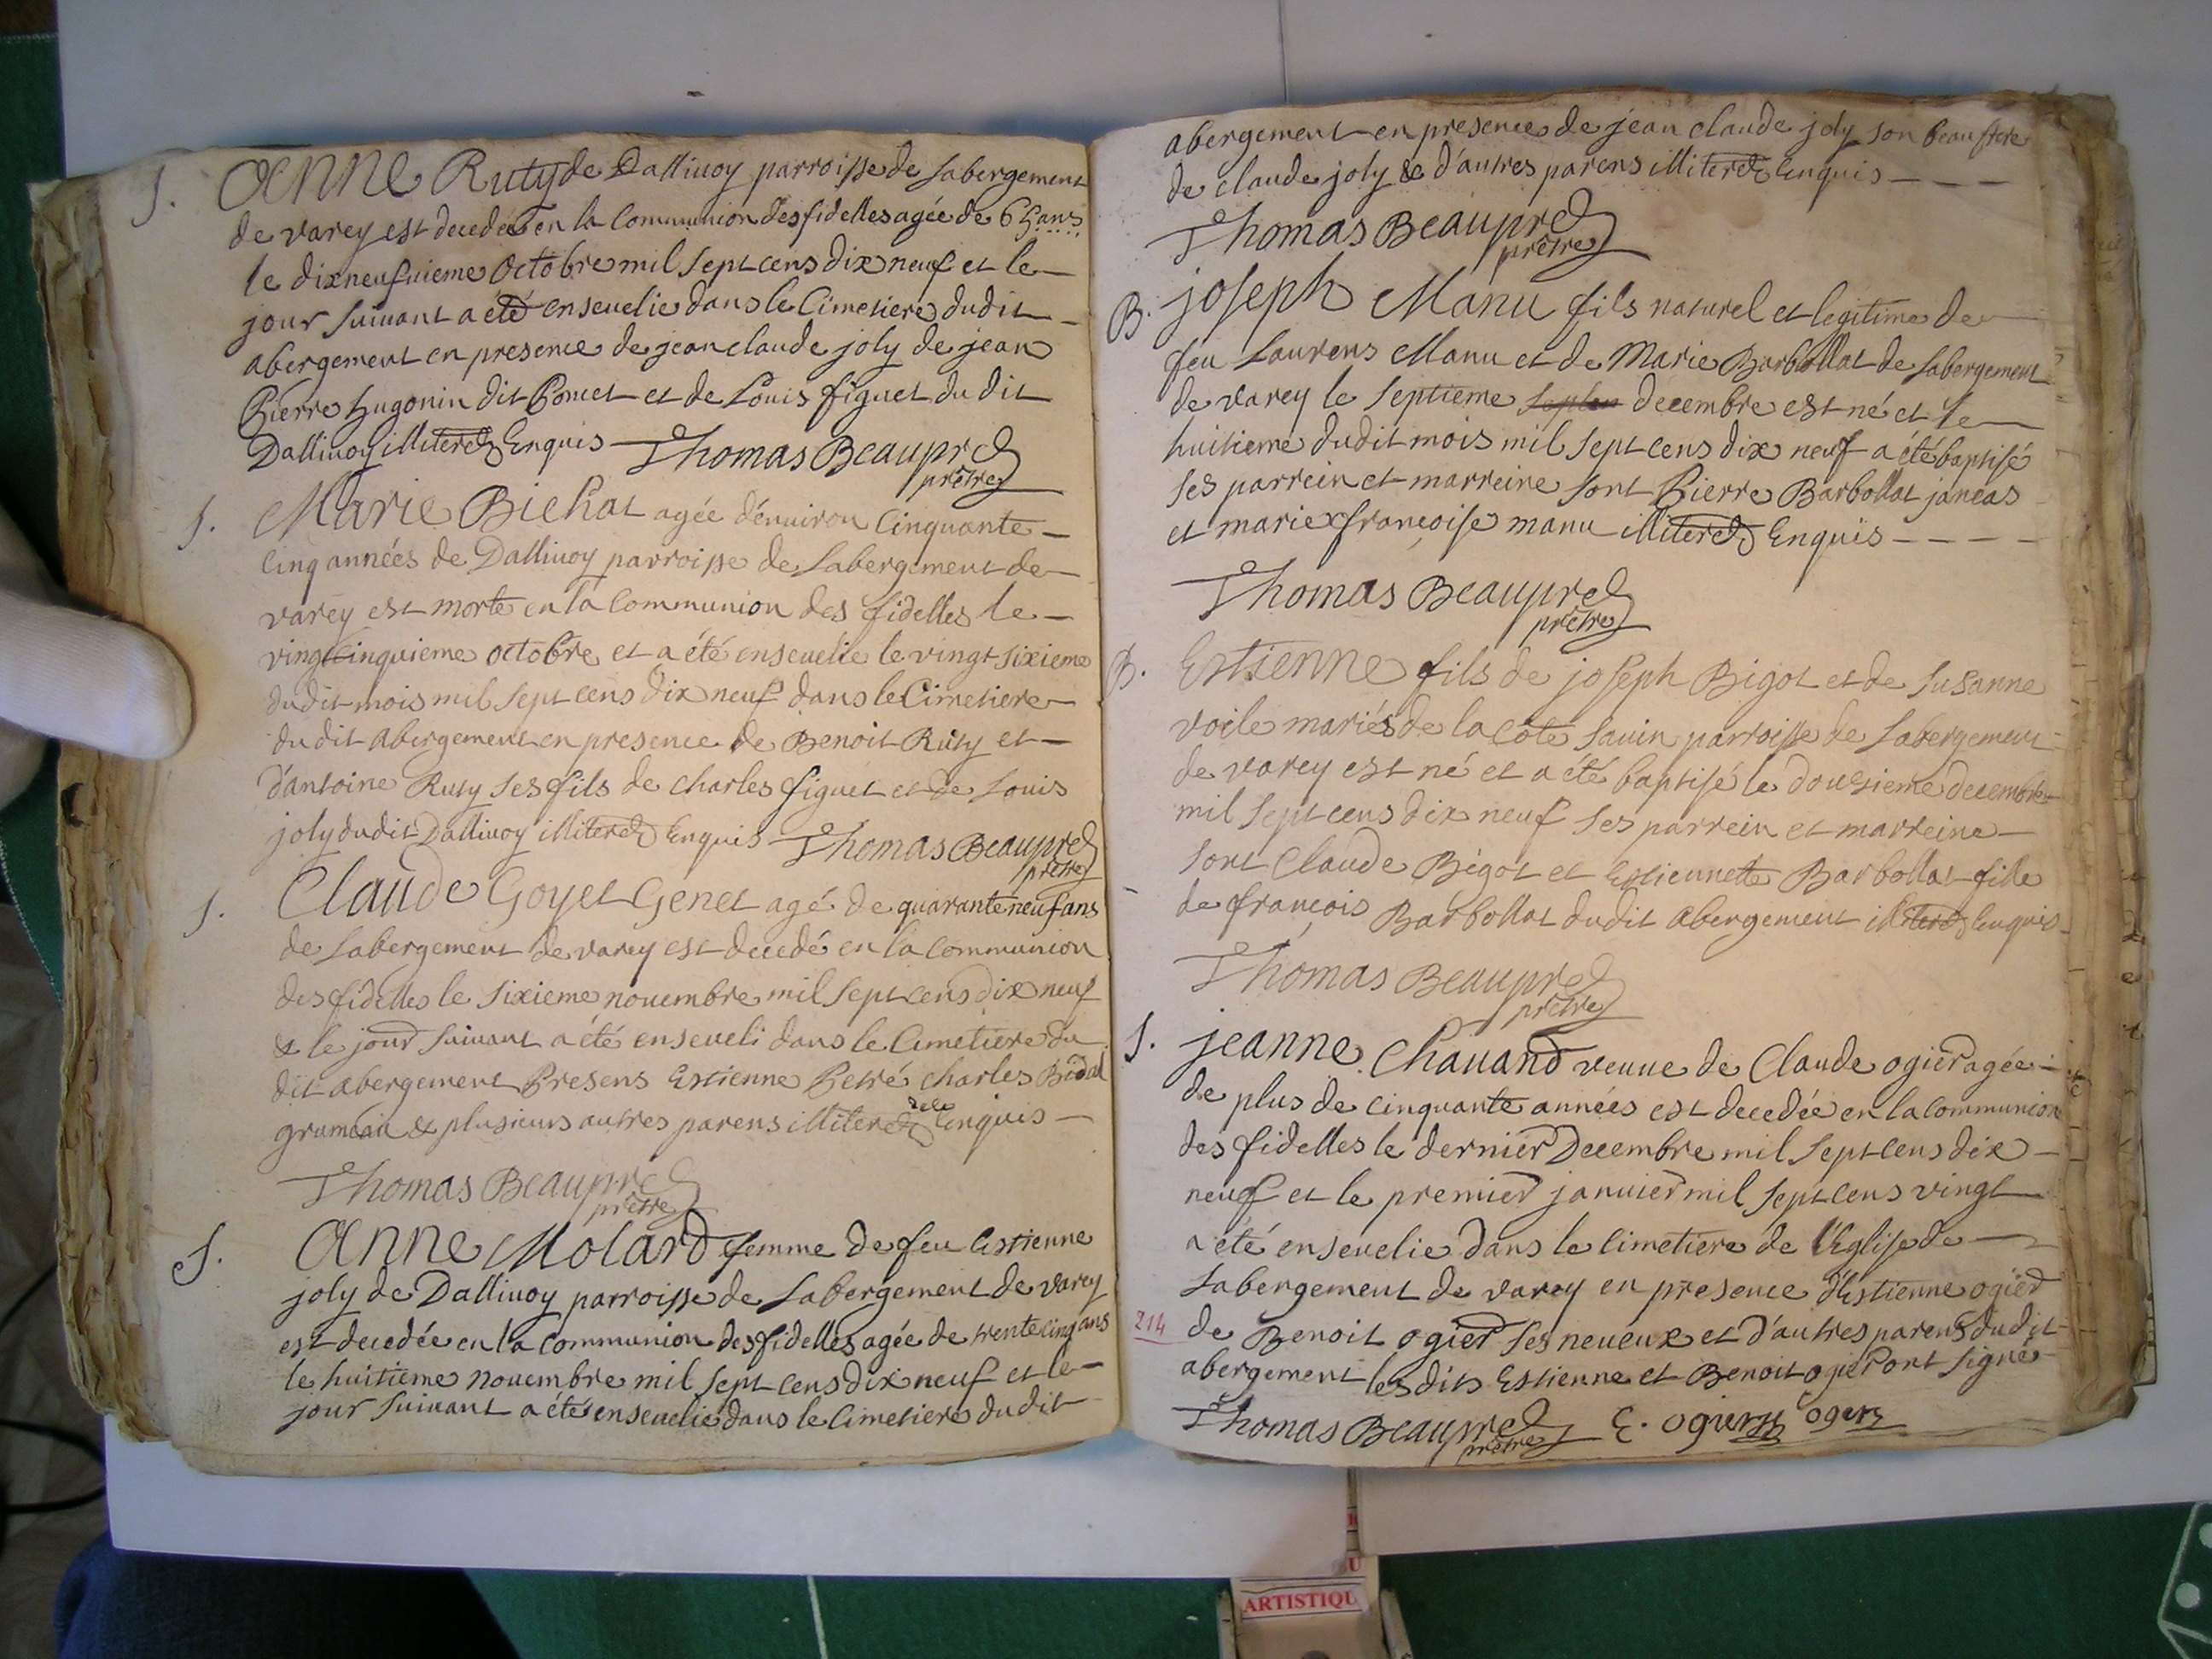 S. Anne Ruty de Dallivoy parroisse de Labergement
de varey est decedée en la Communion des fidelles agée de 65 ans
le dixneufuieme Octobre mil sept cens dix neuf et le
jour suiuant a été enseuelie dans le Cimetiere dudit
abergement en presence de jean claude joly de jean
Pierre hugonin dit Poncet et de Louis figuet du dit
Dallivoy illiterés Enquis Thomas Beaupré
prêtre
S. Marie Bichat agée d'enuiron Cinquante
Cinq années de Dallivoy parroisse de Labergement de
varey est morte en la Communion des fidelles le
vingtcinquieme octobre et a été enseuelie le vingt sixieme
dudit mois mil sept cens dix neuf dans le Cimetiere
du dit Abergement en presence de Benoit Ruty et
d'antoine Ruty ses fils de charles figuet et de Louis
joly dudit Dallivoy illiterés Enquis Thomas Beaupré
prêtre
S. Claude Goyet Genet agé de quarante neuf ans
de Labergement de varey est decedé en la communion
des fidelles le sixieme nouembre mil sept cens dix neuf
& le jour suiuant a été enseueli dans le Cimetiere du
dit abergement Presens Estienne Petré charles Bidal
grumeau & plusieurs autres parens illiterés Enquis
Thomas Beaupré
prêtre
S. Anne Molard femme de feu Estienne
joly de Dallivoy parroisse de Labergement de varey
est decedée en la Communion des fidelles agée de trente cinq ans
le huitieme nouembre mil sept cens dix neuf et le
jour suiuant a été enseuelie dans le Cimetiere dudit
abergement en presence de jean claude joly son beau frere
de claude joly & d'autres parens illiterés Enquis
Thomas Beaupré
prêtre
B. joseph Manu fils naturel et legitime de
feu Laurens Manu et de Marie Barbollat de Labergement
de varey le septieme decembre est né et le
huitieme dudit mois mil sept cens dix neuf a été baptisé
ses parrein et marreine sont Pierre Barbollat janeas
et marie françoise manu illiterés Enquis
Thomas Beaupré
prêtre
B. Estienne fils de joseph Bigot et de Susanne
voile mariés de la côte sauin parroisse de Labergement
de varey est né et a été baptisé le dousieme decembre
mil sept cens dix neuf ses parrein et marreine
sont Claude Bigot et Estiennette Barbollat fille
de françois Barbollat dudit Abergement illiterés Enquis
Thomas Beaupré
prêtre
S. jeanne Chauand veuue de Claude ogier agée
de plus de cinquante années est decedée en la communion
des fidelles le dernier Decembre mil sept cens dix
neuf et le premier januier mil sept cens vingt
a été enseuelie dans le cimetiere de l'Eglise de
Labergement de varey en presence d'Estienne ogier
214 de Benoit ogier ses neueux et d'autres parens dudit
abergement lesdits Estienne et Benoit ogier ont signé
Thomas Beaupré E. ogier ogier
prêtre
ARTISTIQU